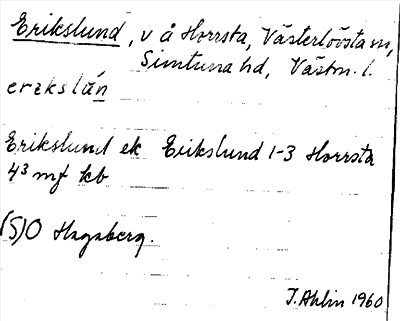 Erikslund, v å Horrsta, Västerlövsta sn,
Simtuna hd, Västm. l.
erekslán
Erikslund ek Erikslund 1-3 Horrsta
4³ mf kb
(S)O Hagaberg.
J. Ahlin 1960